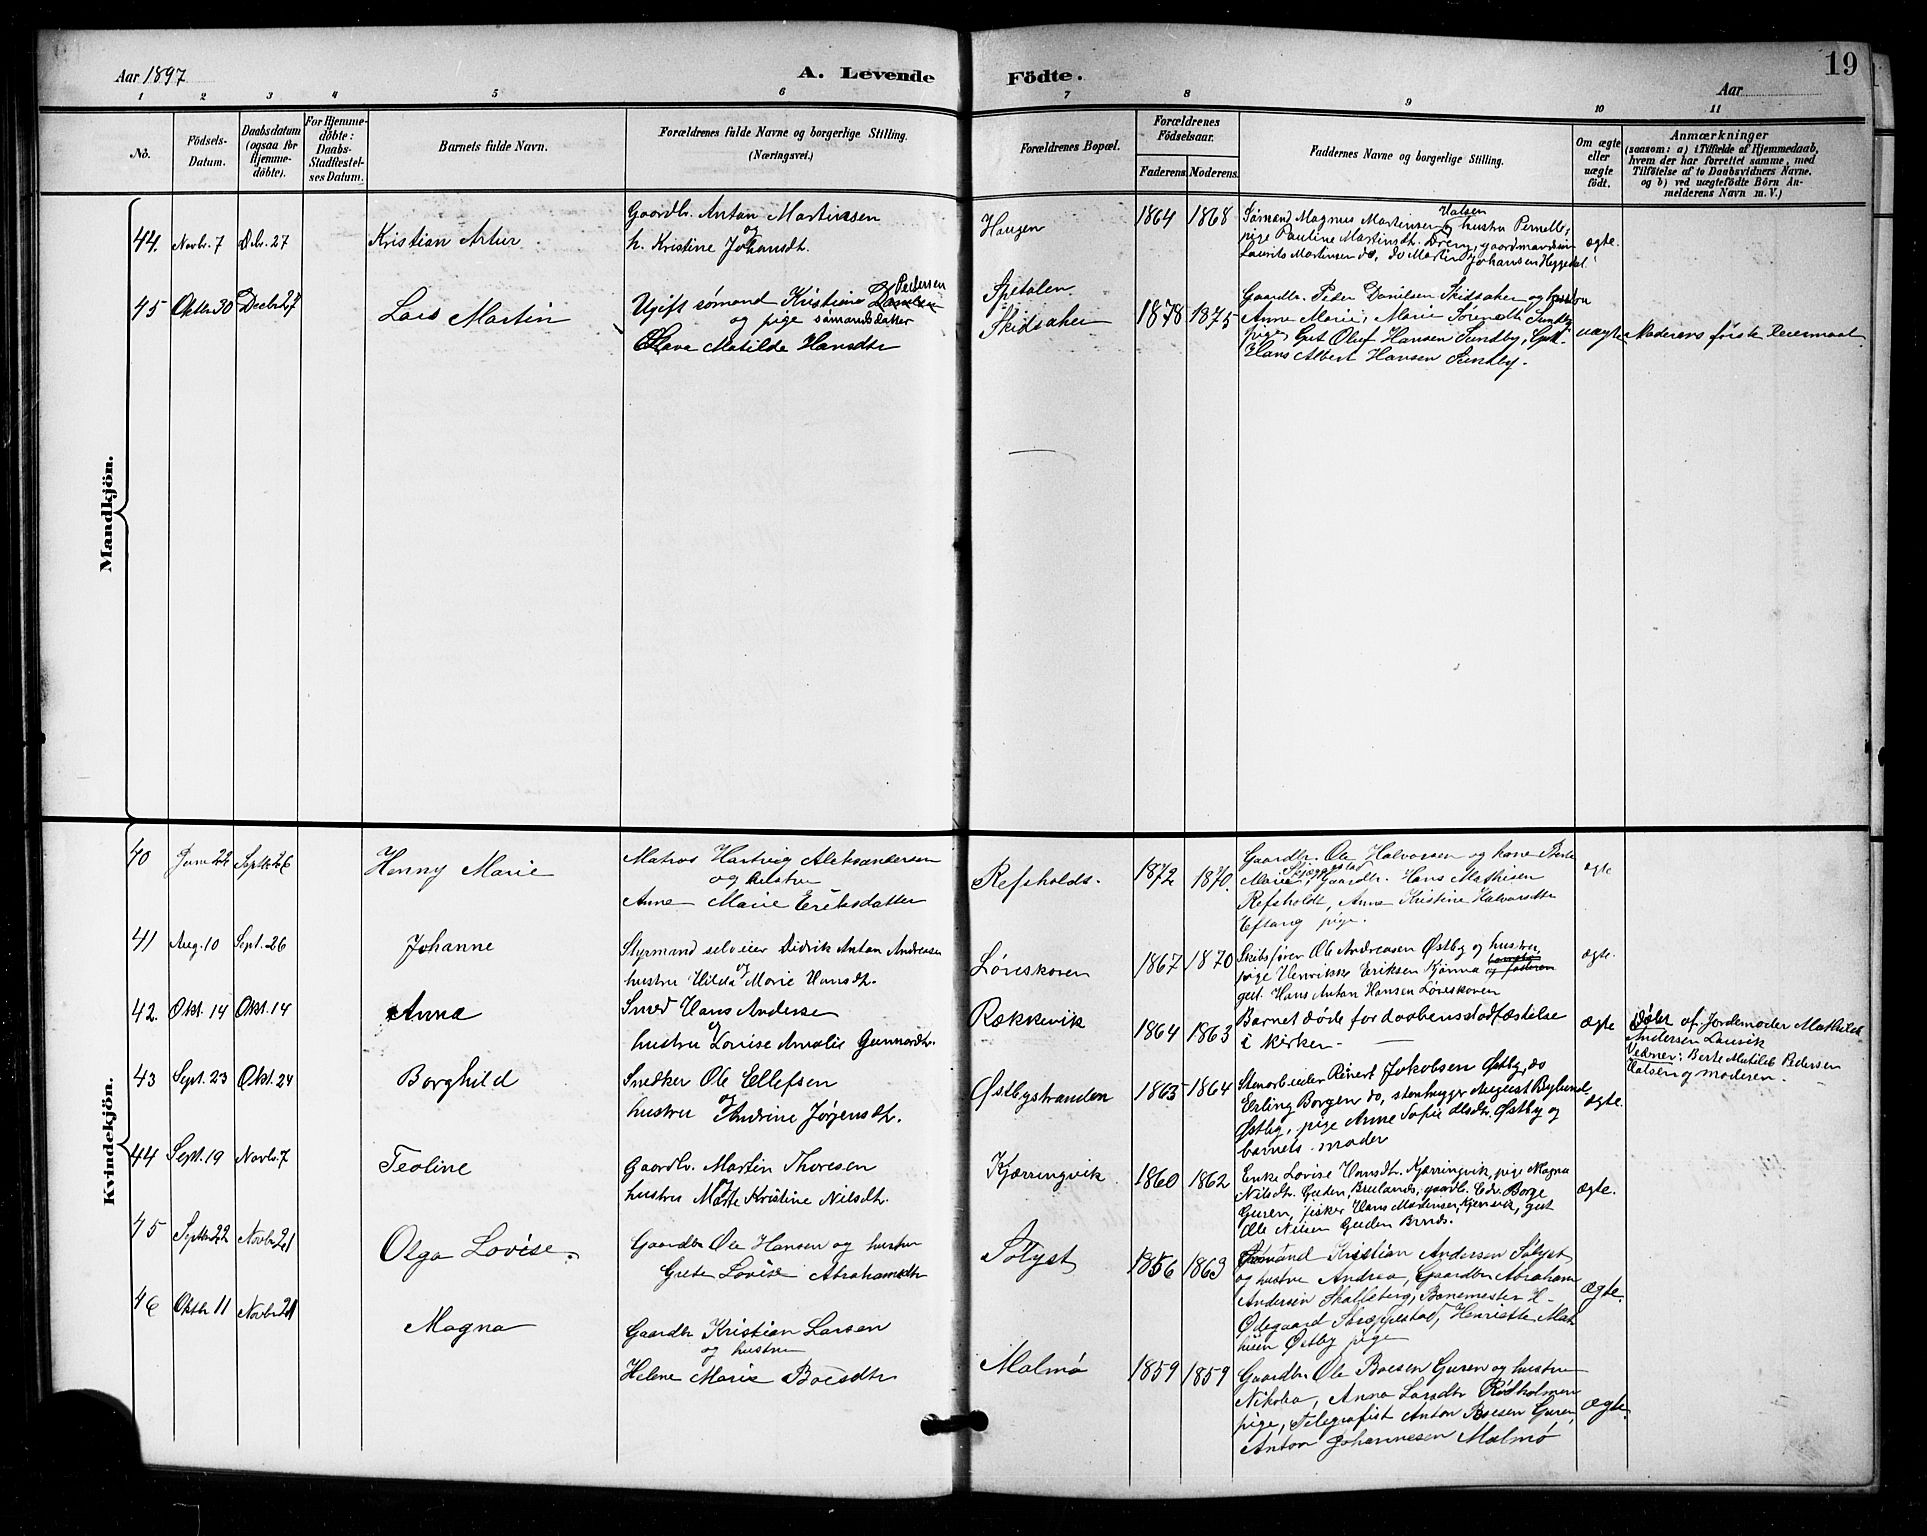 Aar 1897
A. Levende
Födte.
19
Aar
1 2 3 4 5 6 7 8 9 10 11
No.
Födsels-Datum.
Daabsdatum (ogsaa for Hjemme-döbte).
For Hjemme-döbte: Daabs-Stadfæstel-ses Datum.
Barnets fulde Navn.
Forældrenes fulde Navne og borgerlige Stilling. (Næringsvei.)
Forældrenes Bopæl.
Forældrenes Födselsaar.
Faderens. Moderens.
Faddernes Navne og borgerlige Stilling.
Om ægte eller uægte födt.
Anmærkninger
(saasom: a) i Tilfælde af Hjemmedaab,
hvem der har forrettet samme, med
Tilföielse af to Daabsvidners Navne,
og b) ved uægtefödte Börn An-
melderens Navn m. V.)
Mandkjön.
44. Novbr. 7 Dcbr. 27 Kristian Artur
Gaardbr. Anton Martinsen
og
h. Kristine Johansdt.
Haugen 1864 1868
Sømand Magnus Martinsen Valsen og hustru Pernelle,
pige Pauline Martinsdt. Dreng, gaardmandsøn
Laurits Martinsen do, do Martin Johansen Heggedal.
ægte.
45 Oktbr 30 Decbr 27 Lars Martin
Ugift sømand Kristian Pedersen
og pige sømandsdatter
Matilde Hansdtr
Skidsaker 1878 1875
Gaardbr. Peder Danielsen Skidsaker og hustru
Anne Marie, Marie Sørensdt. Sundby
pige, Gut Oluf Hansen Sundby, Gut
Hans Albert Hansen Sundby.
uægte Moderens første Leiermaal.
Kvindekjön.
40 Juni 22 Septbr 26 Henny Marie
Matros Hartvig Aleksandersen
og hustru
Anne Marie Eriksdatter
Refsholdt. 1872 1870.
Gaardbr. Ole Halvorsen og kone Berte
Marie Skjæggestad, Gaardbr. Hans Mathisen
Refsholdt, Anna Kristine Halvorsdtr
Eftang pige.
ægte
41 Aug. 10 Sept. 26 Johanne
Styrmand selveier Didrik Anton Andreasen
og
hustru Hilda Marie Hansdt.
Løveskoven 1867 1870
Skibsfører Ole Andreasen Østby og hustru,
pige Henrikke Eriksen Kjønnø og faderen
gut. Hans Anton Hansen Løveskoven
ægte.
42. Okt. 14 Okt. 14 Anna
Smed Hans Andersen
og
hustru Lovise Amalie Gunnardt.
Rækkevik 1864 1863
Barnet døde før daabens stadfæstelse
i kirken
ægte
Døbt af Jordemoder Mathilde
Andersen Laurvik
Vidner: Berte Matilde Pedersen
Valsen og moderen.
43 Sept. 23 Okt. 24 Borghild
Snedker Ole Ellefsen
og
hustru Andrine Jørgensdt.
Østbystranden 1865 1864
Stenarbeider Rinert Jakobsen Østby, do
Erling Borgen do, stenhugger August Byglund
Østby, pige Anne Sofie Olsdt. Østby og
barnets moder
ægte.
44 Sept. 19 Novbr. 7 Teoline
Gaardbr. Martin Thoresen
og
hustru Marte Kristine Nilsdt.
Kjærringvik 1860 1862
Enke Lovise Hansdt. Kjærringvik, pige Magna
Nilsdt. Guden, Brulands, gaardb. Edv. Borge
Guren, fisker Hans Martinsen, Kjerrvik, gut
Ole Nilsen Guden
ægte.
45 Septbr 22 Novbr 21 Olga Lovise.
Gaardbr Ole Hansen og hustru
Grete Lovise Abrahamsdtr
Solyst 1856 1863
Sømand Kristian Andersen Solyst
og hustru Andrea, Gaardbr Abraham
Andersen Skallsberg, Banemester H.
Ødegaard Skræppestad, Henriette Mat-
hisen Østby pige
ægte.
46 Oktbr 11 Novbr 21 Magna
Gaardbr Kristian Larsen
og hustru
Helene Marie Boesdtr
Malmø 1859 1859
Gaardbr Ole Boesen Guren og hustru
Nikolea, Anna Larsdtr Rødholmen
pige, Telegrafist Anton Boesen Guren,
Anton Johannesen Malmø
ægte.